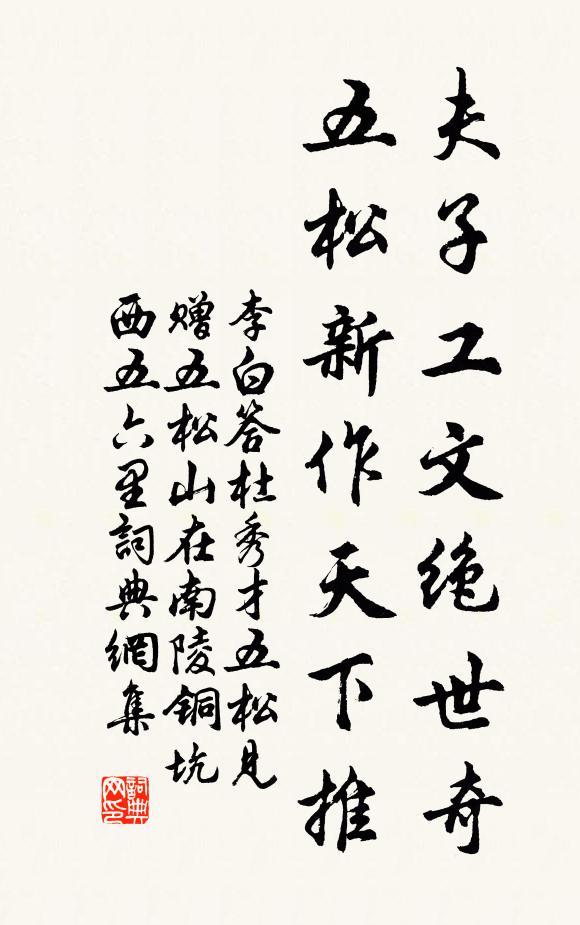 夫子工文绝世奇
五松新作天下推
李白答杜秀才五松見
贈五松山在南陵銅坑
西五六里詞典網集
詞典
网印